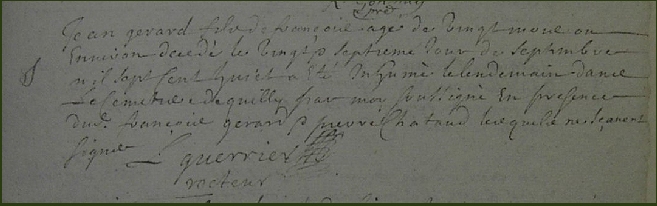 Jean gerard fils de françois age de vingt mois ou
Environ decedé le vingt septieme Jour de septembre
mil sept cent huict a été Inhumé le lendemain dans
le Cemetiere de quilly par moy soussigné En presence
dud. françois gerard pierre Chataud lesquels ne scavent
signer L guerrier
recteur